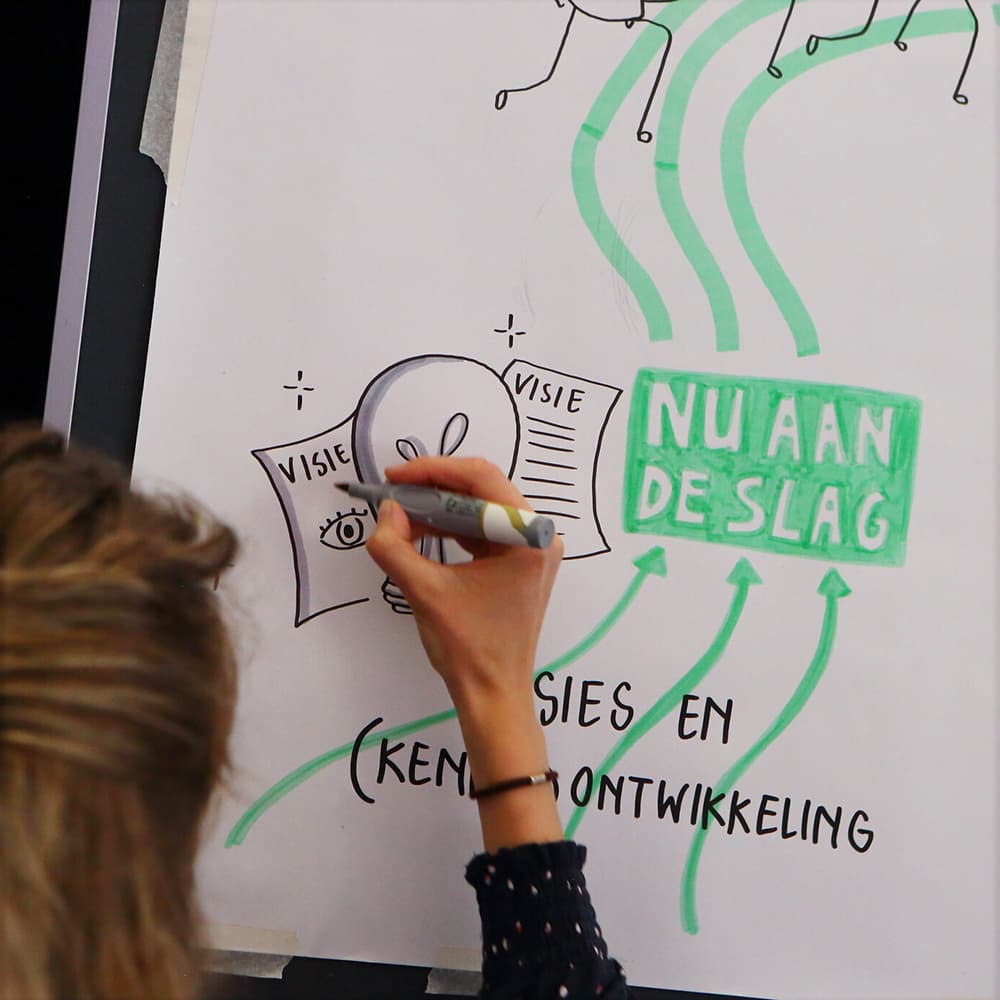 VISIE
VISIE
NU AAN
DE SLAG
SIES EN
(KEN ONTWIKKELING